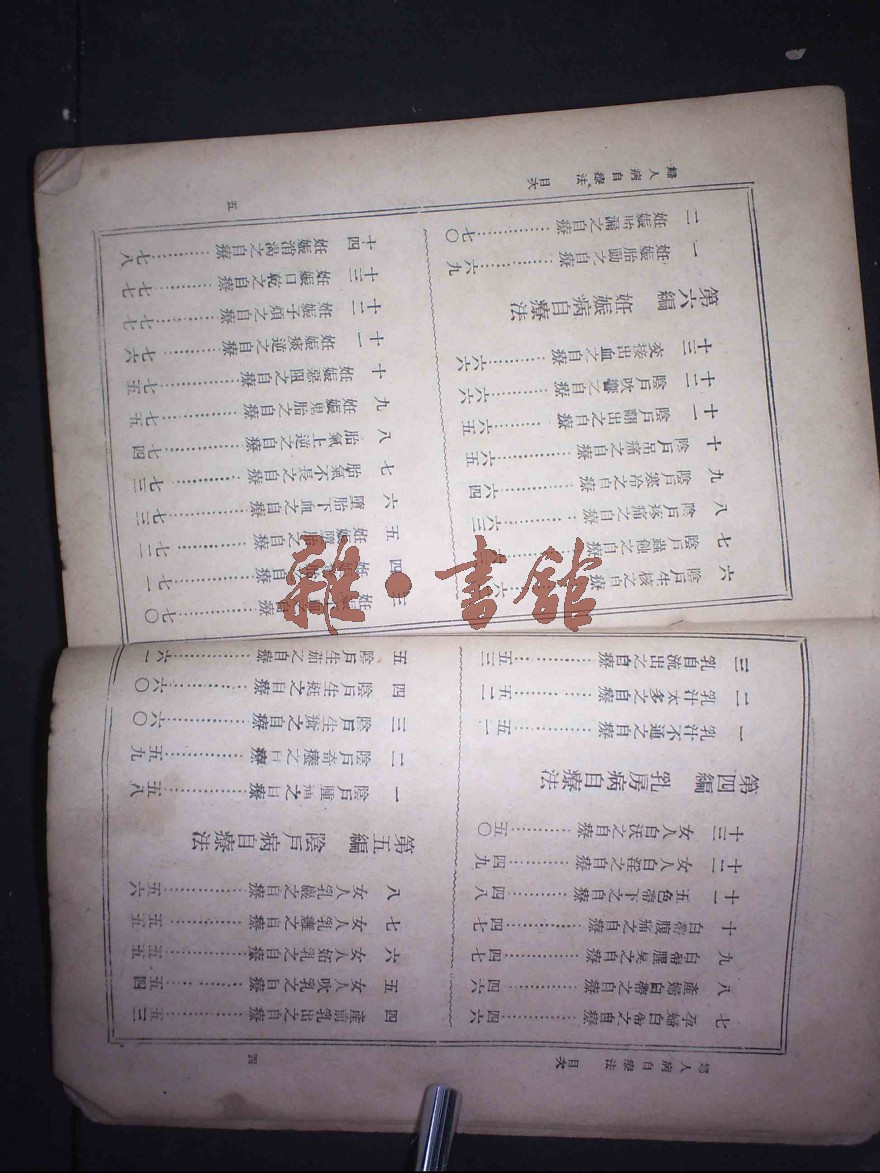 婦人病自療法 目次
四
七 孕婦白帶之自療…………四六
八 產婦白帶之自療…………四六
九 白帶腥臭之自療…………四七
十 白帶腹痛之自療…………四七
十一 五色帶下之自療…………四八
十二 女人白淫之自療…………四九
十三 女人白沃之自療…………五〇
第四編 乳房病自療法
一 乳汁不通之自療…………五一
二 乳汁太多之自療…………五二
三 乳自流出之自療…………五三
四 產前乳出之自療…………五三
五 女人吹乳之自療…………五四
六 女人妬乳之自療…………五五
七 女人乳癰之自療…………五五
八 女人乳巖之自療…………五六
第五編 陰戶病自療法
一 陰戶腫痛之自療…………五八
二 陰戶奇癢之自療…………五九
三 陰戶生瘡之自療…………六〇
四 陰戶生挺之自療…………六〇
五 陰戶生茄之自療…………六一
婦人病自療法 目次
五
六 陰戶生核之自療…………六
七 陰戶蟲蝕之自療…………
八 陰戶疼痛之自療…………六三
九 陰戶寒冷之自療…………六四
十 陰戶吊痛之自療…………六五
十一 陰戶翻出之自療…………六五
十二 陰戶吹響之自療…………六六
十三 交接出血之自療…………六六
第六編 妊娠病自療法
一 妊娠胎動之自療…………六九
二 妊娠胎漏之自療…………七〇
三 妊娠下血之自療…………七〇
四 妊娠自療…………七一
五 妊娠墮胎之自療…………七二
六 墮胎下血之自療…………七三
七 胎氣不長之自療…………七三
八 胎氣上逆之自療…………七四
九 妊娠鬼胎之自療…………七五
十 妊娠惡阻之自療…………七五
十一 妊娠痰逆之自療…………七六
十二 妊娠子煩之自療…………七七
十三 妊娠口乾之自療…………七七
十四 妊娠消渴之自療…………七八
雜·書館